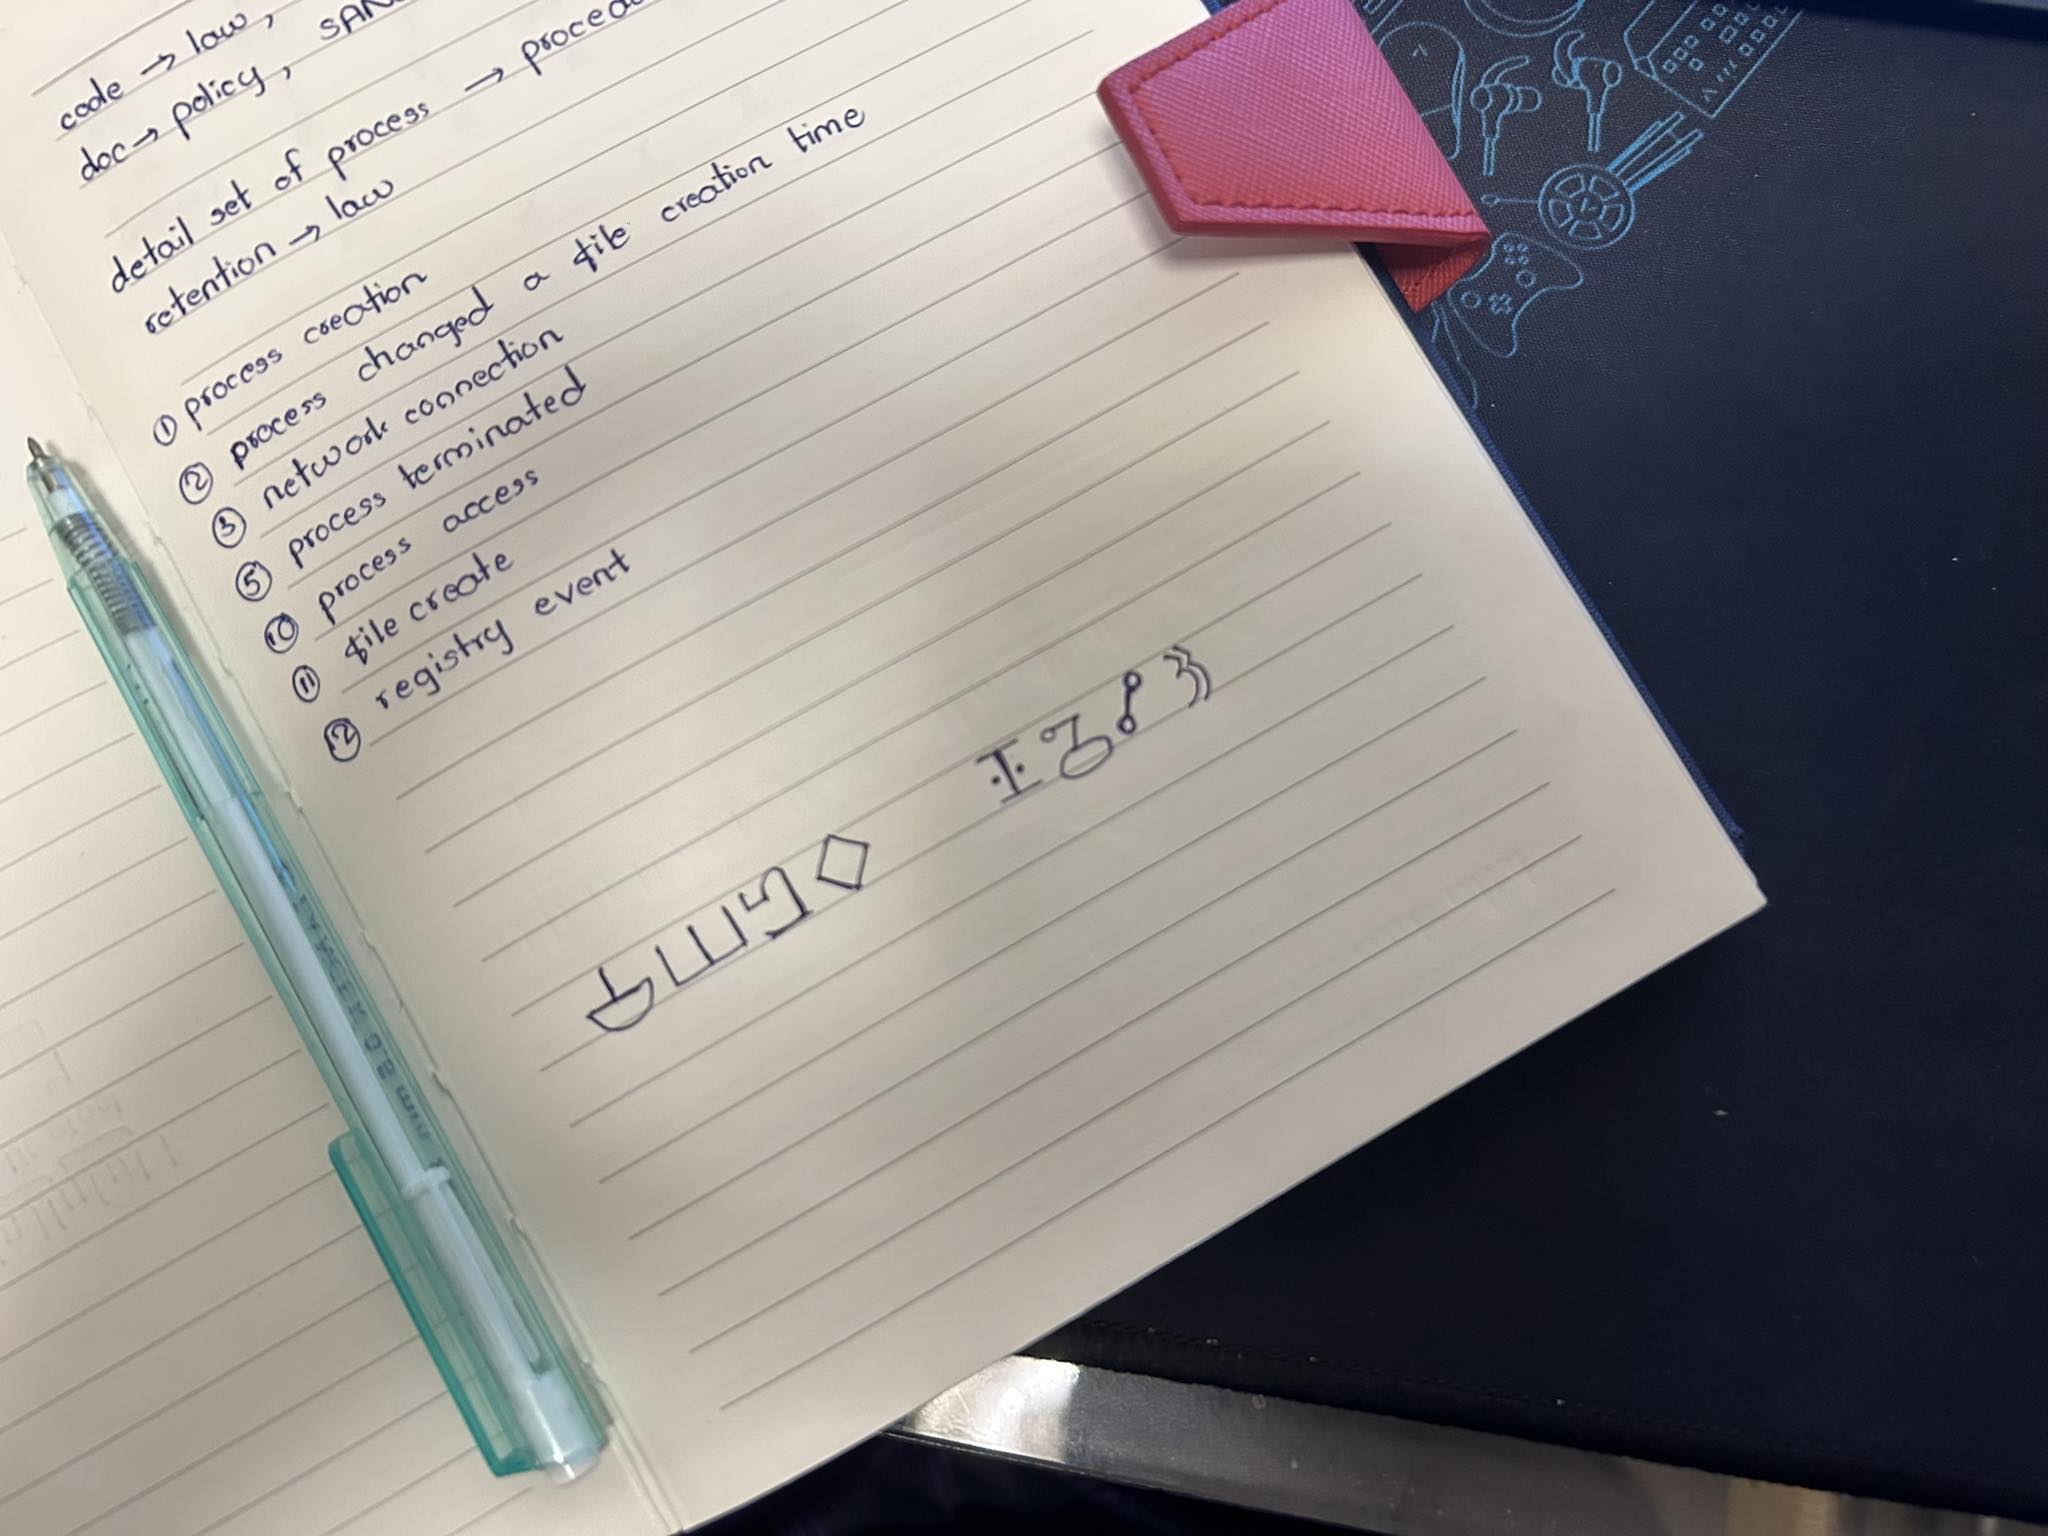 code → law,
doc → policy,
detail set of process →
retention → law
① process creation
② process changed a file creation time
③ network connection
⑤ process terminated
⑩ process access
⑪ file create
⑫ registry event
0.8 mm